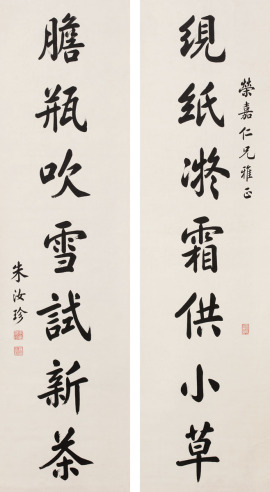 榮嘉仁兄雅正
硯紙凝霜供小草
膽瓶吹雪試新茶
朱汝珍